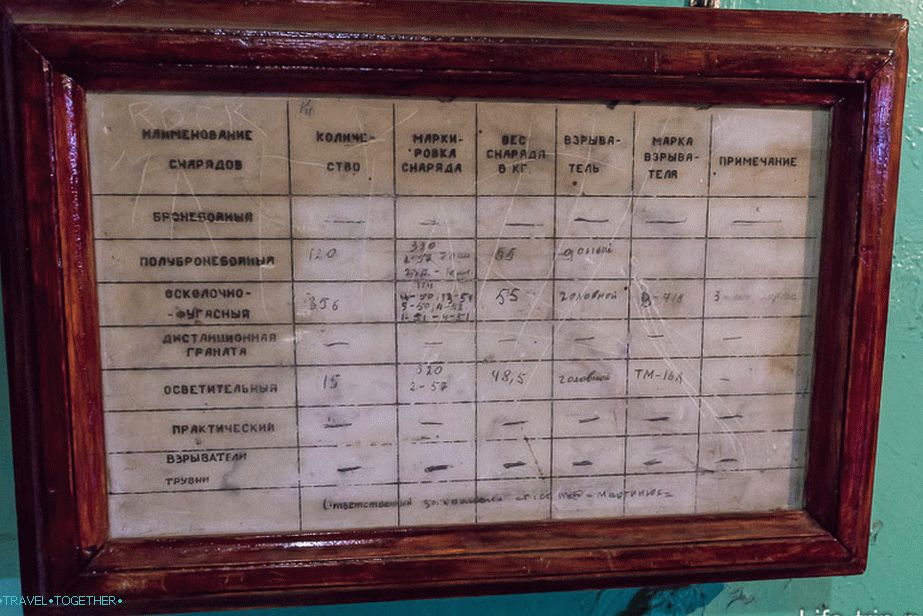 ROCK
НАИМЕНОВАНИЕ СНАРЯДОВ КОЛИЧЕ-СТВО МАРКИ-РОВКА СНАРЯДА ВЕС СНАРЯДА В КГ. ВЗРЫВА-ТЕЛЬ МАРКА ВЗРЫВА-ТЕЛЯ ПРИМЕЧАНИЕ
БРОНЕБОЙНЫЙ — — — — — —
ПОЛУБРОНЕБОЙНЫЙ 120 320 55 донный
ОСКОЛОЧНО-
-ФУГАСНЫЙ 356 55 головной
ДИСТАНЦИОННАЯ
ГРАНАТА — — — — — —
ОСВЕТИТЕЛЬНЫЙ 15 320 2-57 48,5 головной ТМ-16Л —
ПРАКТИЧЕСКИЙ — — — — — —
ВЗРЫВАТЕЛИ
ТРУБКИ — — — — — —
Ответственный
•TRAVEL•TOGETHER•